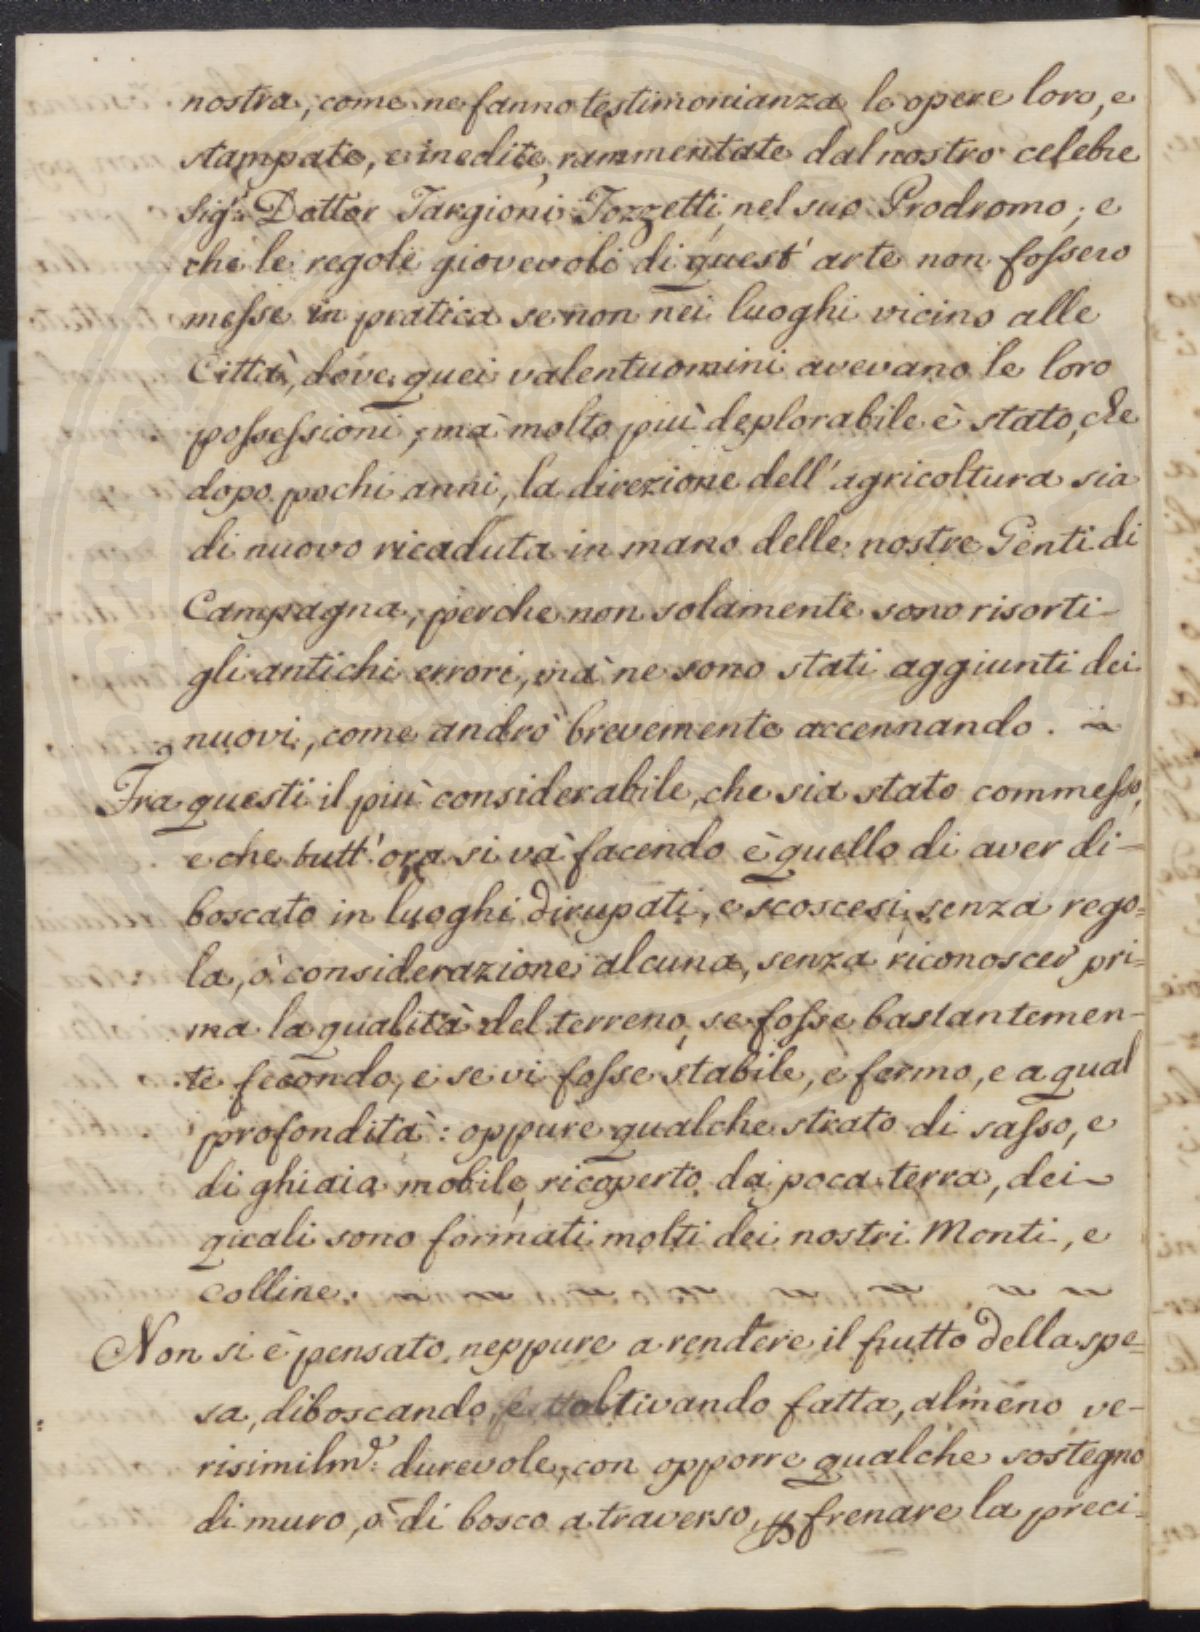 nostra, come ne fanno testimonianza le opere loro, e
stampate, e inedite, rammentate dal nostro celebre
Sig.r Dottor Targioni Tozzetti nel suo Prodromo; e
che le regole giovevoli di quest' arte non fossero
messe in pratica se non nei luoghi vicino alle
Città, dove quei valentuomini avevano le loro
possessioni; mà molto più deplorabile è stato, che
dopo pochi anni, la direzione dell' agricoltura sia
di nuovo ricaduta in mano delle nostre Genti di
Campagna, perche non solamente sono risorti
gli antichi errori, mà ne sono stati aggiunti dei
nuovi, come andrò brevemente accennando.
Fra questi il più considerabile, che sia stato commesso,
e che tutt' ora si và facendo è quello di aver di-
boscato in luoghi dirupati, e scoscesi, senza rego=
la, ò considerazione alcuna, senza riconoscer pri=
ma la qualità del terreno, se fosse bastantemen-
te fecondo, e se vi fosse stabile, e fermo, e a qual
profondità: oppure qualche strato di sasso, e
di ghiaia mobile, ricoperto da poca terra, dei
quali sono formati molti dei nostri Monti, e
colline.
Non si è pensato neppure a rendere il frutto della spe=
sa, diboscando, e coltivando fatta, almeno ve-
risimilm.e durevole, con opporre qualche sostegno
di muro, ò di bosco a traverso, p frenare la preci-